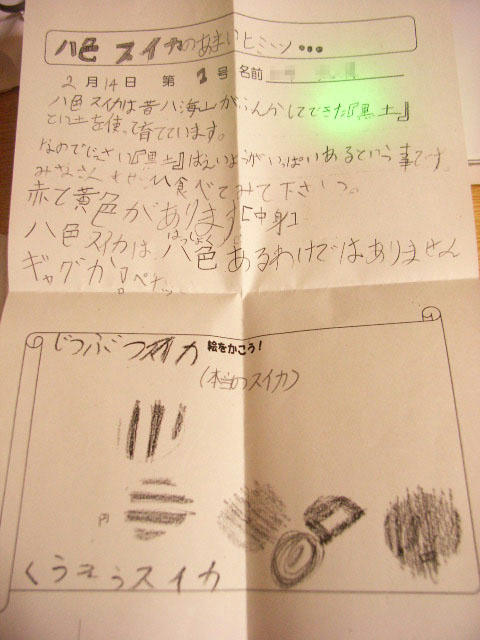 八色スイカのあまいヒミツ…
2月14日 第1号 名前
八色スイカは昔八海山がふんかしてできた『黒土』
という土を使って育てています。
なのでじっさい『黒土』はえいようがいっぱいあるという事です。
みなさんもぜひ食べてみて下さいっ。
赤て黄色があります[中身]
八色スイカは、八色あるわけではありません
はっしょく
ギャグか!ペナッ…
じつぶつスイカ 絵をかこう!
(本当のスイカ)
円
くうそうスイカ